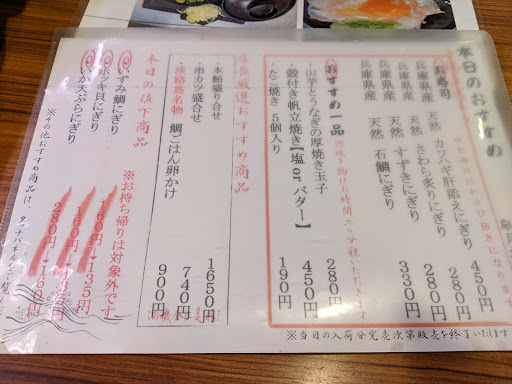 本日のおすすめ
お寿司
兵庫県産 天然 カワハギ肝添えにぎり 450円
兵庫県産 天然 さわら炙りにぎり 280円
兵庫県産 天然 すずきにぎり 280円
兵庫県産 天然 石鯛にぎり 330円
おすすめ一品
山芋とうなぎの厚焼き玉子 280円
殻付き帆立焼き【塩 or バター】 450円
たこ焼き 5個入り 190円
※当日の入荷分完売次第販売を終了いたします
店長厳選おすすめ商品
本鮪盛り合せ 1650円
串カツ盛合せ 740円
淡路島名物 鯛ごはん卵かけ 900円
本日の値下商品
※お持ち帰りは対象外です
いずみ鯛にぎり 160円→135円
ホッキ貝にぎり 160円→135円
いか天ぷらにぎり 280円→160円
※その他おすすめ商品は、タッチパネル